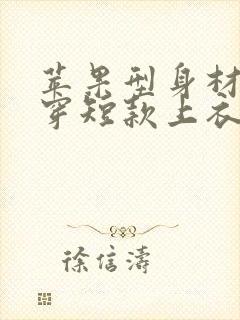 苹果型身材
穿短款上衣
徐信涛